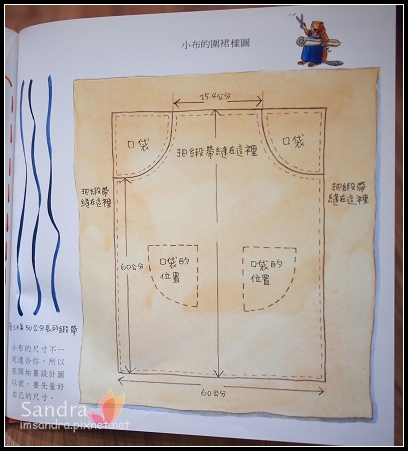 小布的圍裙樣圖
25.4公分
口袋
口袋
把緞帶縫在這裡
把緞帶
縫在這裡
把緞帶
縫在這裡
60公分
口袋的
位置
口袋的
位置
60公分
50公分長的緞帶
小布的尺寸不一
定適合你，所以
在開始畫設計圖
以前，要先量好
自己的尺寸。
Sandra
imsandra.pixnet.net